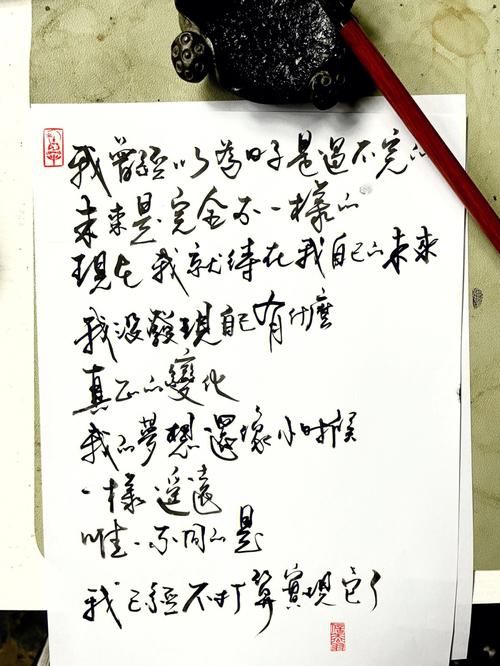 我曾經以為日子是過不完的
未來是完全不一樣的
現在我就待在我自己的未來
我沒發現自己有什麼
真正的變化
我的夢想還像小時候
一樣遙遠
唯一不同的是
我已經不打算實現它了